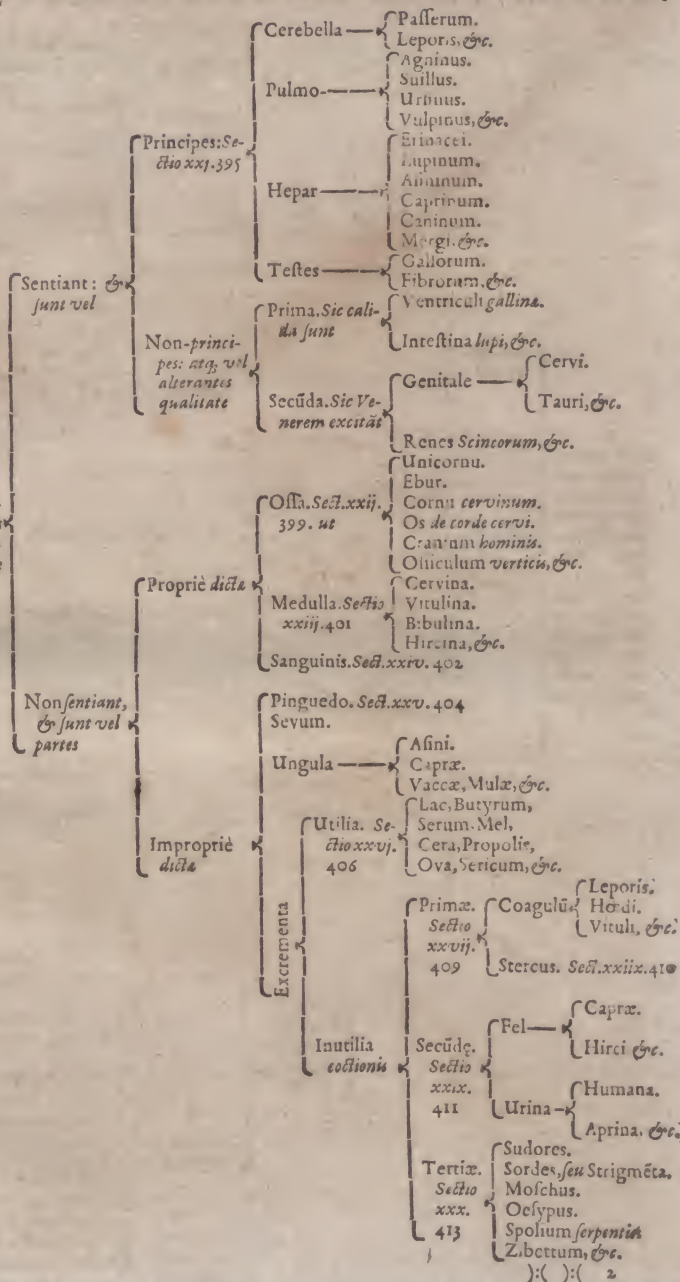 Sentiant: &
ſunt vel
Principes: Se-
ctio xxj. 395
Cerebella
Paſſerum.
Leporis, &c.
Pulmo
Agninus.
Suillus.
Urſinus.
Vulpinus, &c.
Hepar
Erinacei.
Lupinum.
Aſininum.
Caprinum.
Caninum.
Mergi. &c.
Teſtes
Gallorum.
Fibrorum, &c.
Non-princi-
pes: atq; vel
alterantes
qualitate
Prima. Sic cali-
da ſunt
Ventriculi gallinæ.
Inteſtina lupi, &c.
Secūda. Sic Ve-
nerem excitāt
Genitale
Cervi.
Tauri, &c.
Renes Scincorum, &c.
Non ſentiant,
& ſunt vel
partes
Propriè dictæ
Oſſa. Sect. xxij.
399. ut
Unicornu.
Ebur.
Cornu cervinum.
Os de corde cervi.
Cranium hominis.
Oſſiculum verticis, &c.
Medulla. Sectio
xxiij. 401
Cervina.
Vitulina.
Bibulina.
Hircina, &c.
Sanguinis. Sect. xxiv. 402
Impropriè
dictæ
Pinguedo. Sect. xxv. 404
Sevum.
Ungula
Aſini.
Capræ.
Vaccæ, Mulæ, &c.
Excrementa
Utilia. Se-
ctio xxvj.
406
Lac, Butyrum,
Serum. Mel,
Cera, Propolis,
Ova, Sericum, &c.
Inutilia
coctionis
Primæ.
Sectio
xxvij.
409
Coagulū
Leporis.
Hœdi.
Vituli, &c.
Stercus. Sect. xxiix. 410
Secūdę.
Sectio
xxix.
411
Fel
Capræ.
Hirci &c.
Urina
Humana.
Aprina. &c.
Tertiæ.
Sectio
xxx.
413
Sudores.
Sordes, ſeu Strigmēta.
Moſchus.
Oeſypus.
Spolium ſerpentis
Zibettum, &c.
):( ):( 2